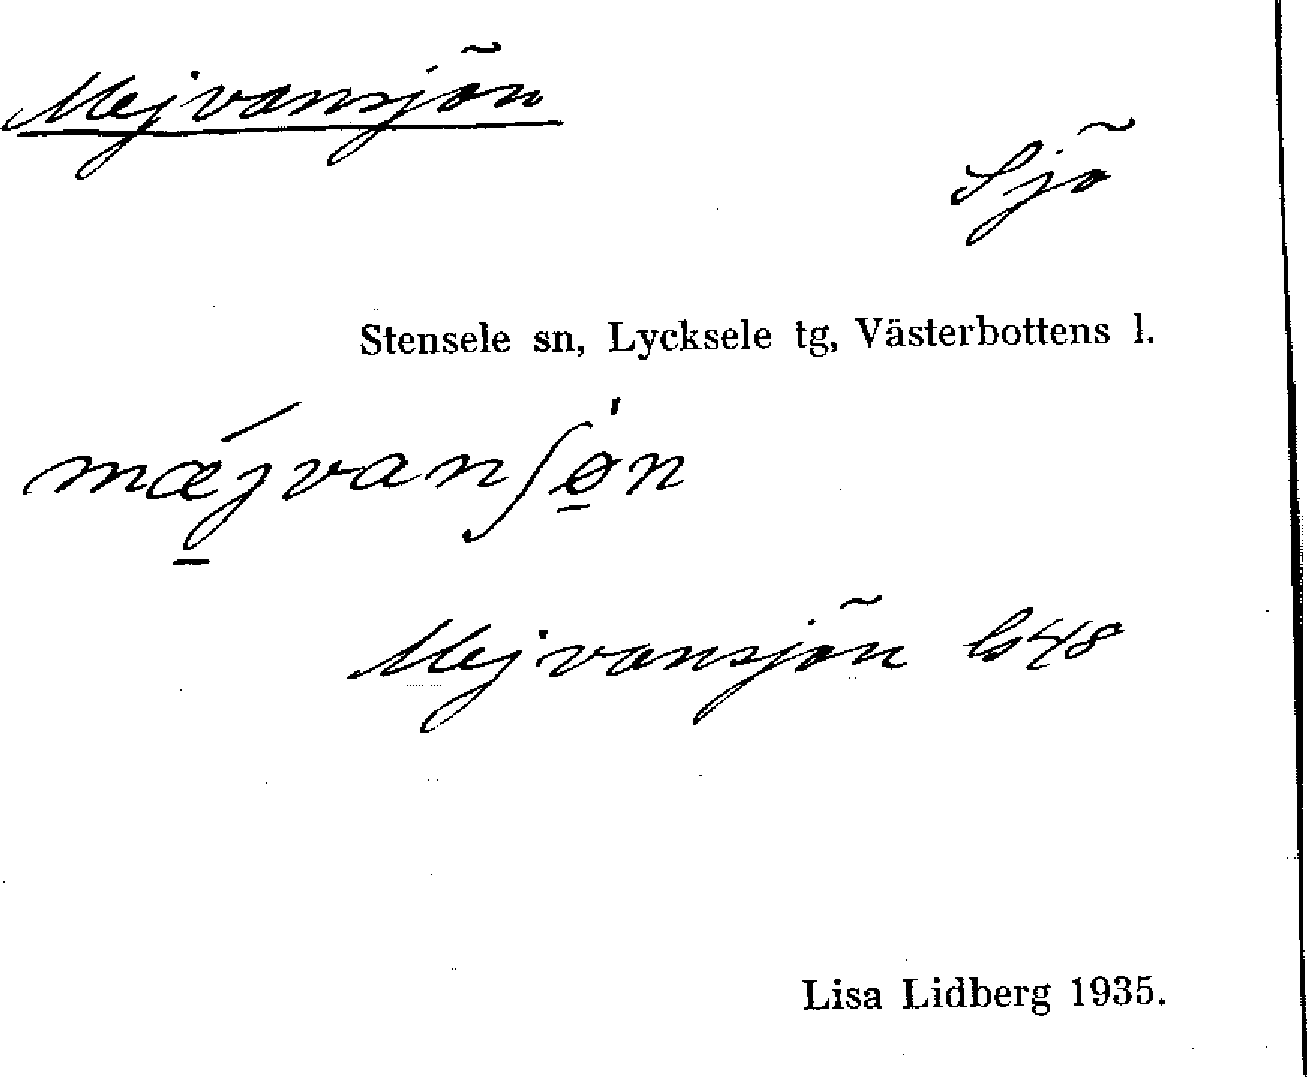 Mejvansjön
Sjö
Stensele sn, Lycksele tg, Västerbottens l.
mǽ̱jvanʃø̱̍n
Mejvansjön b48
Lisa Lidberg 1935.